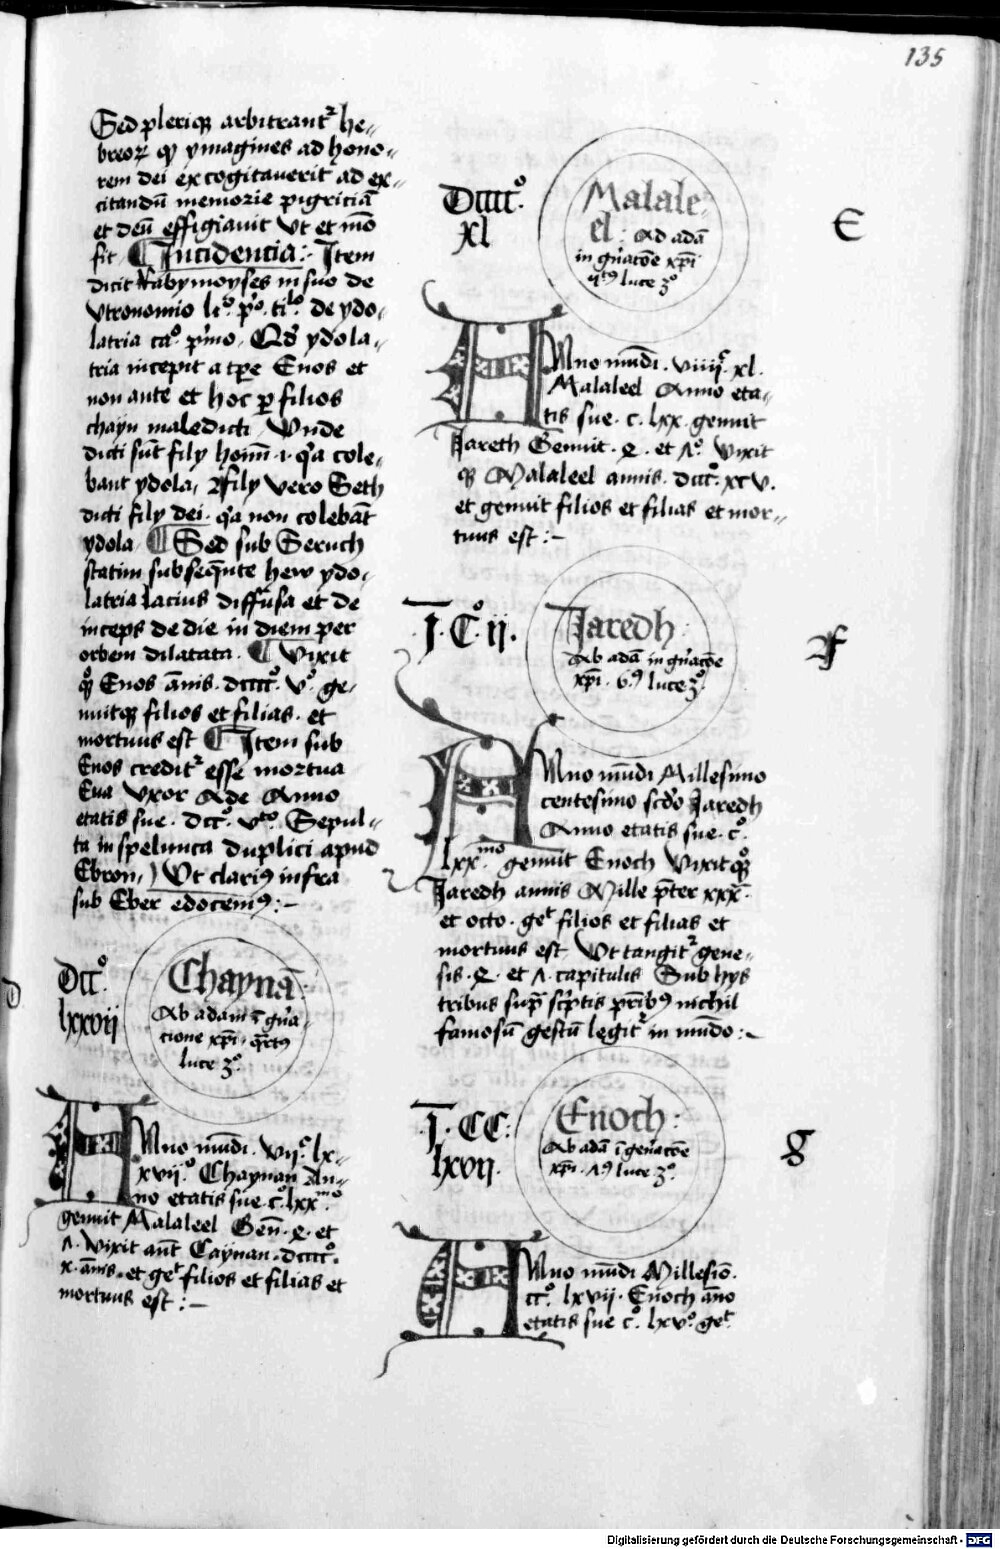 135
Sed pleriq; arbitrant̄ he-
breoꝝ q̈ ymagines ad hono-
rem dei excogitaverīt ad ex-
citandū memorie pigriciā
et deū effigiavit Vt et mō
fit ¶ Incidencia: Item
dicit Raby moyses in suo de
Vtronomio li° p°. ti̊lo. de ydo-
latria ca°. p̊mo, Qd ydola-
tria incepit a tp̄e Enos et
non ante et hoc ꝑ filios
chayn maledicti, Vnde
dicti sūt filÿ homī .i. q̊a cole-
bant ydola, filÿ vero Seth
dicti filÿ dei. q̊a non colebāt
ydola. ¶ Sed sub Seruch
statim subseq̄nte hew ydo-
latria lacius diffusa et de
inceps de die in diem per
orbem dilatata. ¶ Vixit
q̊ꝫ Enos ānis. dcccc°. v°. ge-
nuitq; filios et filias. et
mortuus est ¶ Item sub
Enos credit̄ esse mortua
Eua Vxor Ade Anno
etatis sue. dcc°. v̊to. Sepul-
ta in spelunca duplici apud
Ebron, Vt clariꝰ infra
sub Eber edocemꝰ:-
D
dcc°.
lxxvii
Chaynā:
Ab adam ī gn̄a-
cione xp̄i. q̄rtꝰ
luce 3°.
Anno mūdi. vii°. lx-
xvii°. Chaynan An-
no etatis sue c°. lxx̊mo
genuit Malaleel Geñ. 4. et
Λ. Vixit aūt Caynan. dcccc°.
x. ānis. et geͭ filios et filias et
mortuus est:-
dcccc°.
xl
Malale-
el: Ad adā
in gn̄acōe xp̄i
luce 3°
E
Anno mūdi. viiii°. xl.
Malaleel Anno eta-
tis sue. c. lxx. genuit
Jareth Genuit. 4. et Λ°. Vixit
q; Malaleel annis. dccc°. xcv.
et genuit filios et filias et mor-
tuus est:-
J. C°. ij.
Jaredh:
Ab adā in gn̄acōe
xp̄i. 6.ꝰ luce 3°.
F
Anno mūdi Millesimo
centesimo scd̄o Jaredh
Anno etatis sue. c°.
lxx̊mo genuit Enoch Vixit q̊ꝫ
Jaredh annis Mille p̄ter xxx.
et octo. geͭ filios et filias et
mortuus est, Vt tangit̄ gene-
sis. 4. et Λ. capitulis Sub hÿs
tribus sup̄ sc̄ptis pr̄ibꝰ nichil
famosū gestū legit̄ in mūdo:-
J. CC:
lxvij.
Enoch:
Ab adā ī gen̄acōe
xp̄i. Λꝰ luce 3°.
g
Anno mūdi Millesīo.
cc°. lxvij. Enoch āno
etatis sue c°. lxv°. geͭ.
Digitalisierung gefördert durch die Deutsche Forschungsgemeinschaft - DFG